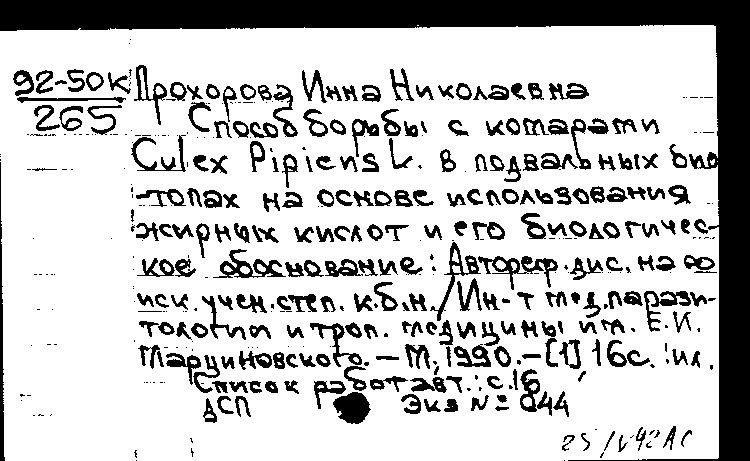 92-50К
265
Прохорова Инна Николаевна
Способ борьбы с комарами
Culex Pipiens L. в подвальных био
-топах на основе использования
жирных кислот и его биологичес-
кое обоснование: Автореф. дис. на со
иск. учен. степ. к.б.н. / Ин-т мед. парази-
тологии и троп. медицины им. Е.И.
Марциновского. — М, 1990. — [1] 16с. : ил.
Список работ авт.: с.16
ДСП Экз № 044